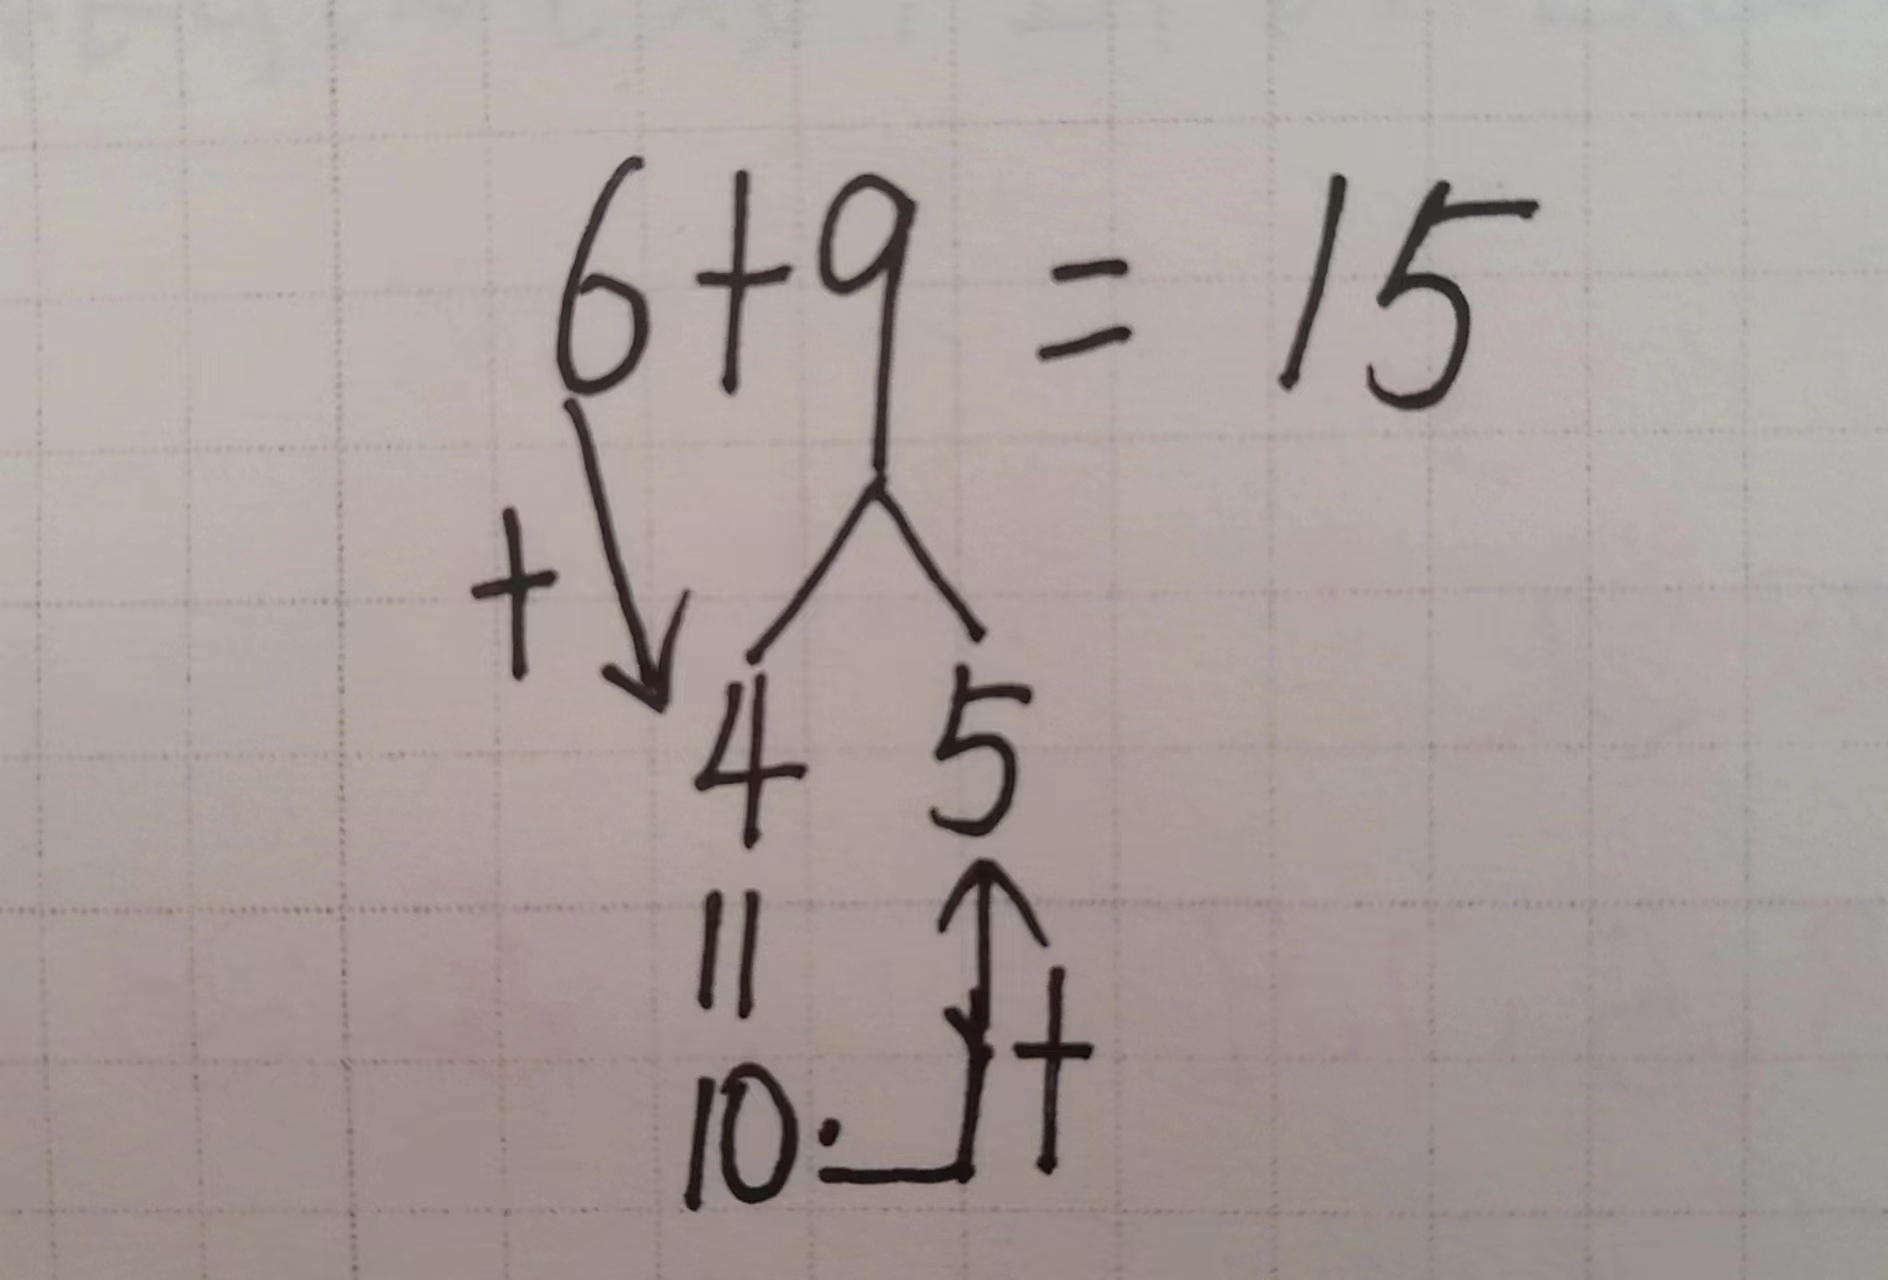 6+9 = 15
+
4 5
||
+
10